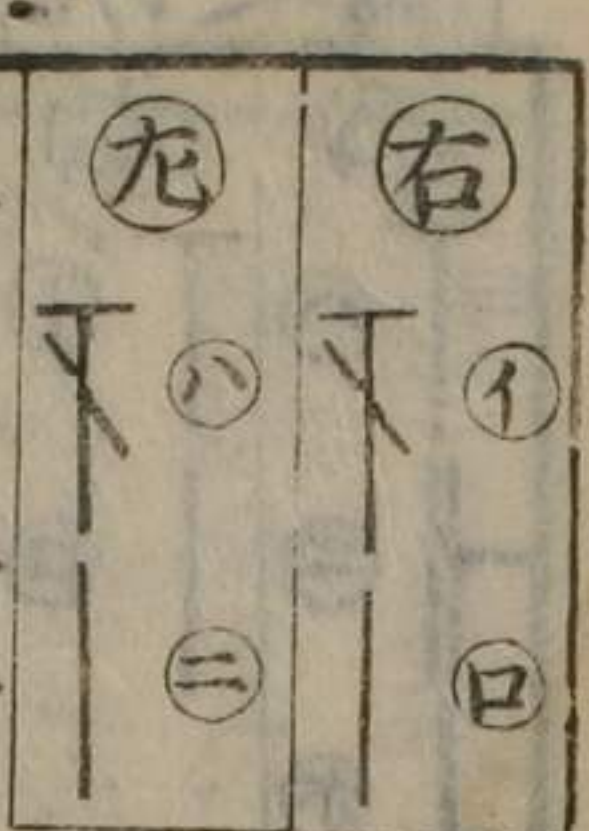 右
イ
ロ
左
ハ
ニ